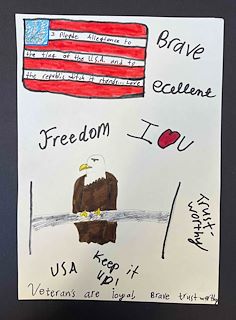 I Pledge Allegiance to
the flag of the U.S.A. and to
the republic witch it stands...
Brave
ecellent
Freedom
I ❤ U
trust-
worthy
USA
Keep it
up!
Veteran's are loyal Brave trust worthy